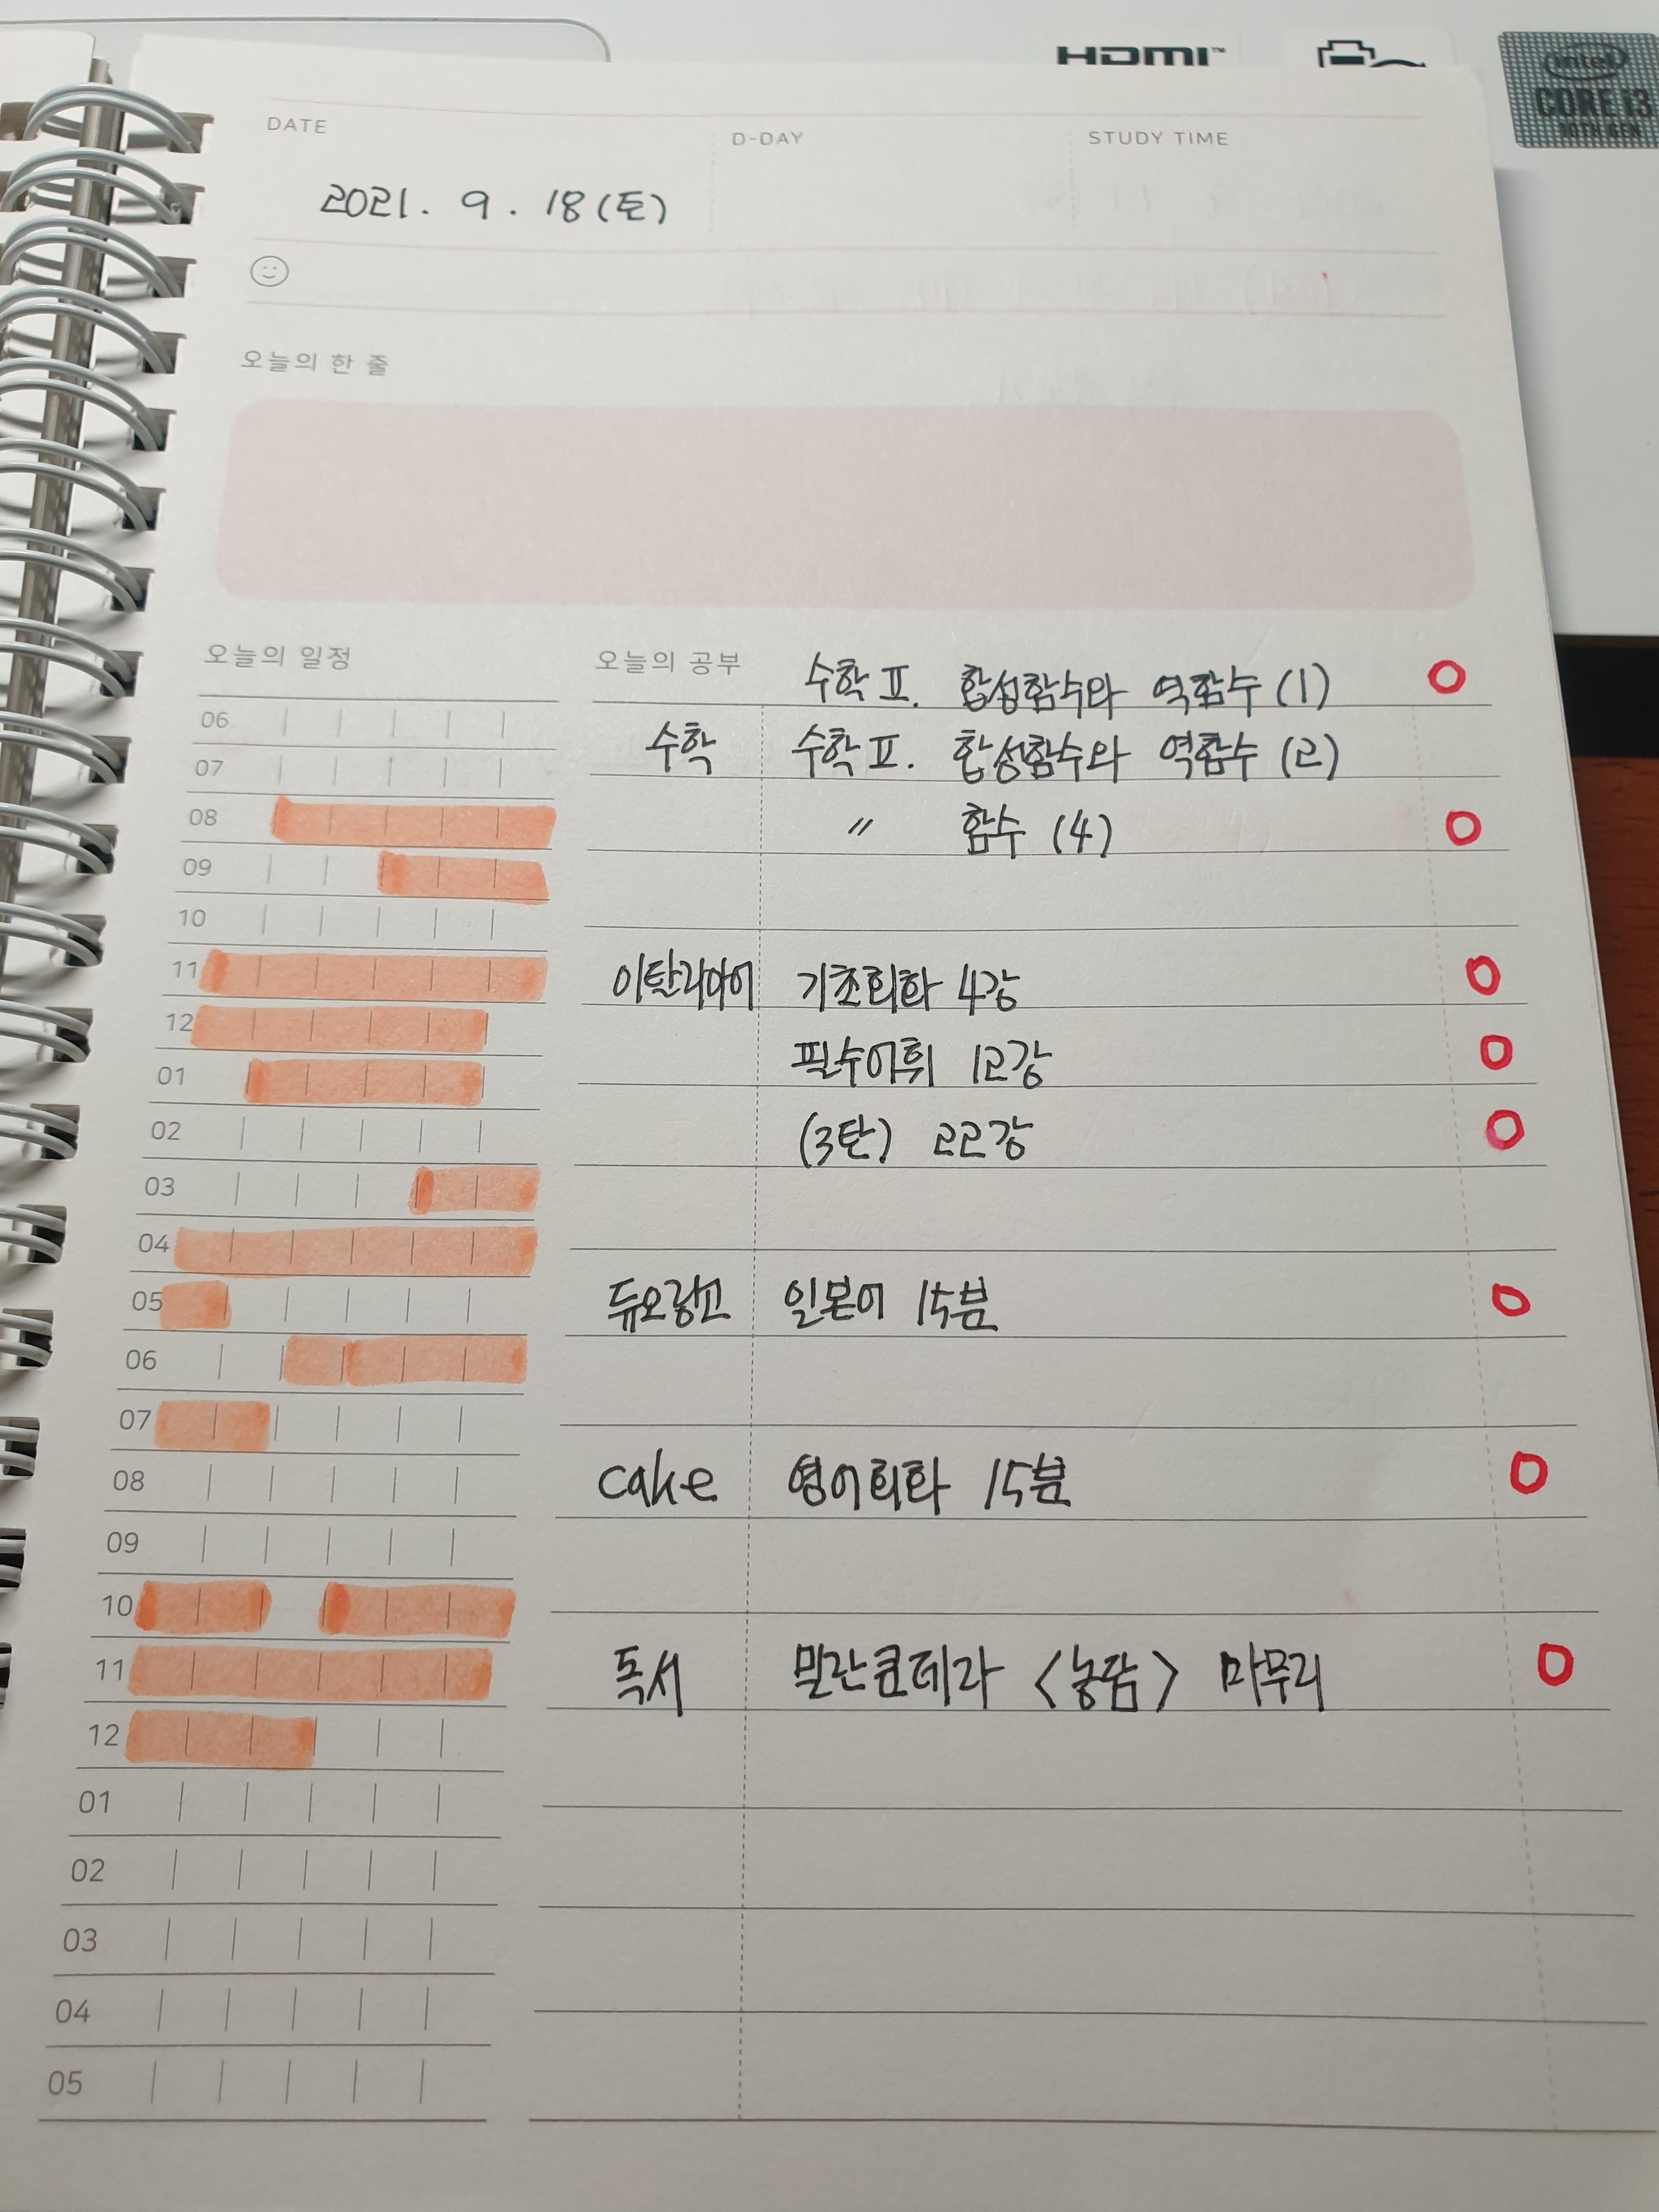 HDMI™
intel
CORE i3
10TH GEN
DATE
D-DAY
STUDY TIME
2021. 9. 18(토)
오늘의 한 줄
오늘의 일정
오늘의 공부
수학 Ⅱ. 합성함수와 역함수 (1) O
06
수학 수학 Ⅱ. 합성함수와 역함수 (2)
07
08
〃 함수 (4) O
09
10
11
이탈리아어 기초회화 4강 O
12
필수어휘 12강 O
01
02
(3탄) 22강 O
03
04
05
듀오링고 일본어 15분 O
06
07
08
cake 영어회화 15분 O
09
10
11
독서 밀란쿤데라 <농담> 마무리 O
12
01
02
03
04
05